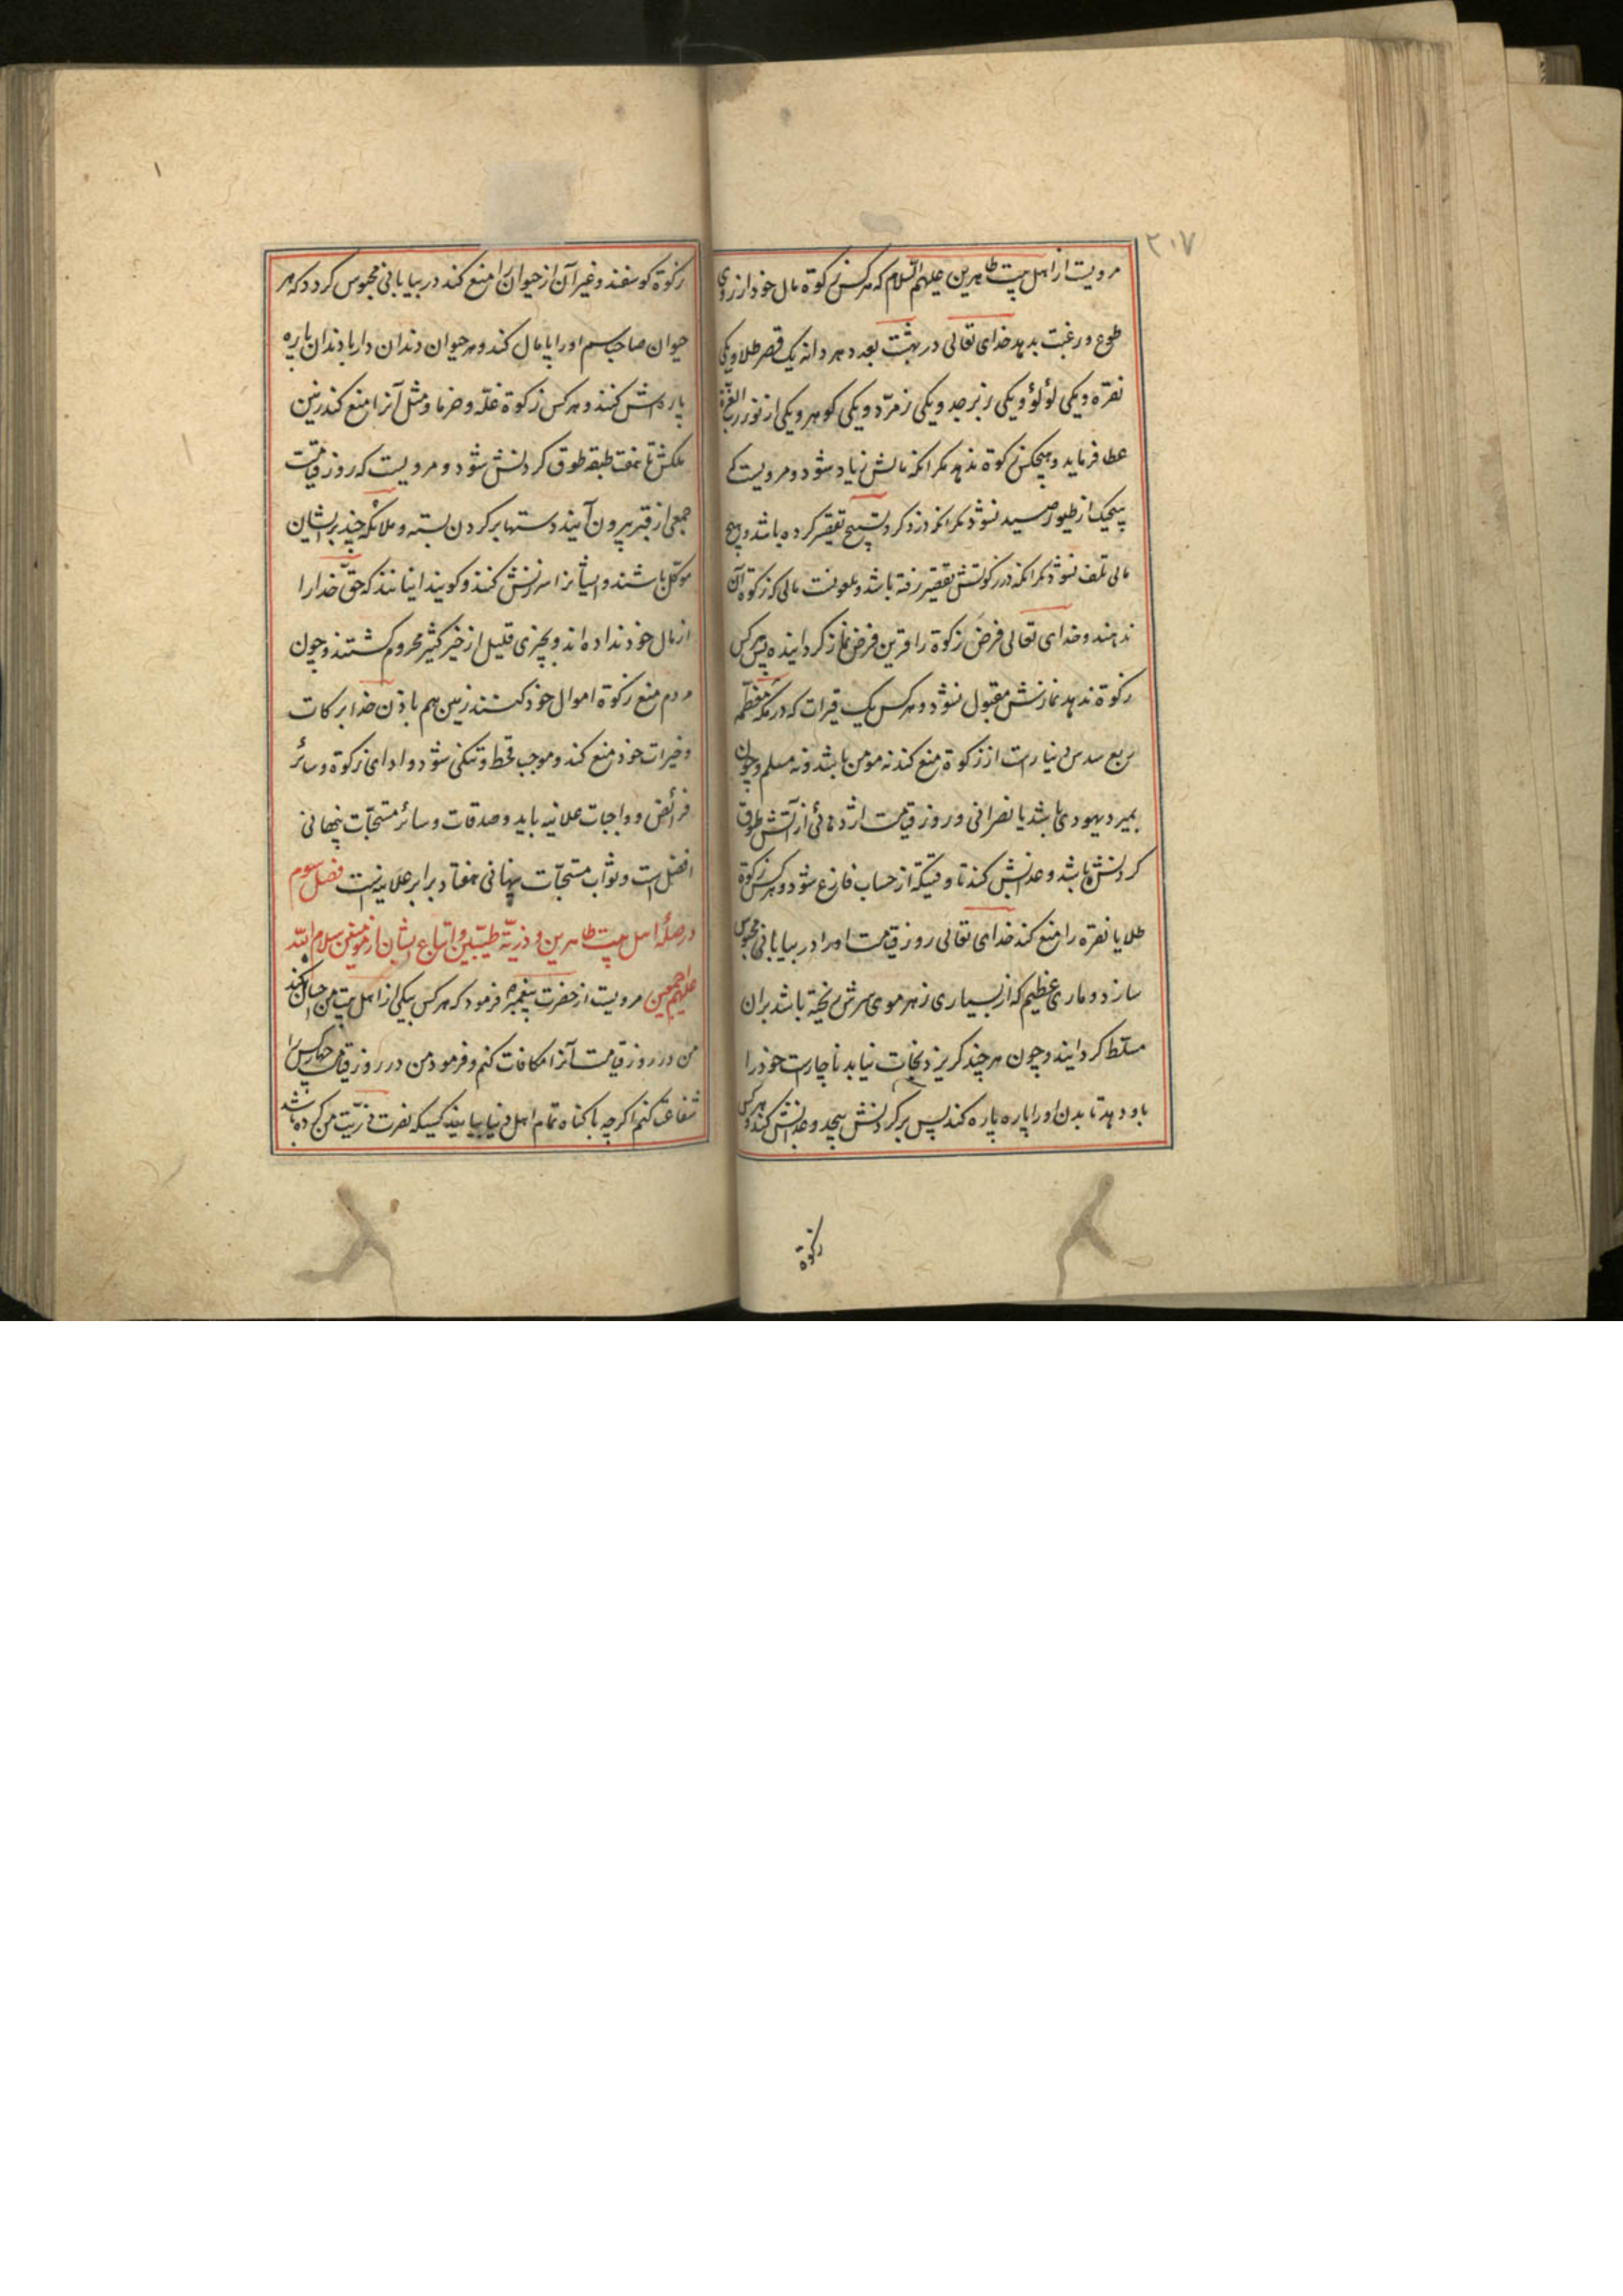 ۲۰۷
مرویست از اهل بیت طاهرین علیهم السلام که هر کس زکوة مال خود از روی
طوع و رغبت بدهد خدای تعالی در بهشت بعدد هر دانه یک قصر طلا و یکی
نقره و یکی لؤلؤ و یکی زبرجد و یکی زمرّد و یکی کوهر و یکی از نور رب العزة
عطا فرماید و هیچکس زکوة ندهد مکر انکه مالش زیاد شود و مرویست که
هیچیک از طیور صید نشود مکر انکه در ذکر و تسبیح تقصیر کرده باشد و هیچ
مالی تلف نشود مکر انکه در زکوتش تقصیر رفته باشد و ملعونست مالی که زکوة آن
ندهند و خدای تعالی فرض زکوة را قرین فرض نماز کردانیده پس هر کس
زکوة ندهد نمازش مقبول نشود و هر کس یک قیرات که در مکه معظمه
ربع سدس دینار است از زکوة منع کند نه مومن باشد و نه مسلم و چون
بمیرد یهودی باشد یا نصرانی و روز قیامت اژدهائی از آتش طوق
کردنش باشد و عذابش کند تا وقتیکه از حساب فارغ شود و هر کس زکوة
طلا یا نقره را منع کند خدای تعالی روز قیامت او را در بیابانی محبوس
سازد و ماری عظیم که از بسیاری زهر موی سرش ریخته باشد بران
مسلط کردانند و چون هر چند کریزد نجات نیابد ناچار است خود را
باو دهد تا بدن او را پاره پاره کند پس بر کردنش پیچد و عذابش کند و هر کس
زکوة
زکوة کوسفند و غیر آن از حیوان را منع کند در بیابانی محبوس کردد که هر
حیوان صاحب سم او را پامال کند و هر حیوان دندان دار با دندان پاره
پاره اش کنند و هر کس زکوة غلّه و خرما و مثل آنرا منع کند زمین
ملکش تا هفت طبقه طوق کردنش شود و مرویست که روز قیامت
جمعی از قبر بیرون آیند دستها بر کردن بسته و ملائکه چند بر ایشان
موکّل باشند و ایشانرا سرزنش کنند و کویند اینانند که حقّ خدا را
از مال خود نداده اند و بچیزی قلیل از خیر کثیر محروم کشتند و چون
مردم منع زکوة اموال خود کنند زمین هم باذن خدا برکات
و خیرات خود منع کند و موجب قحط و تنکی شود و ادای زکوة و سائر
فرائض و واجبات علانیه باید و صدقات و سائر مستحبّات پنهانی
افضل است و ثواب مستحبّات پنهانی هفتاد برابر علانیه است فصل سوم
در صلۀ اهل بیت طاهرین و ذریّة طیّبین و اتباع ایشان از مومنین سلام الله
علیهم اجمعین مرویست از حضرت پیغمبر فرمود که هر کس بیکی از اهل بیت من احسان کند
من در روز قیامت آنرا مکافات کنم و فرمود من در روز قیامت چهار کس را
شفاعت کنم اکرچه با کناه تمام اهل دنیا بیایند کسیکه نصرت ذریّت من کرده باشد